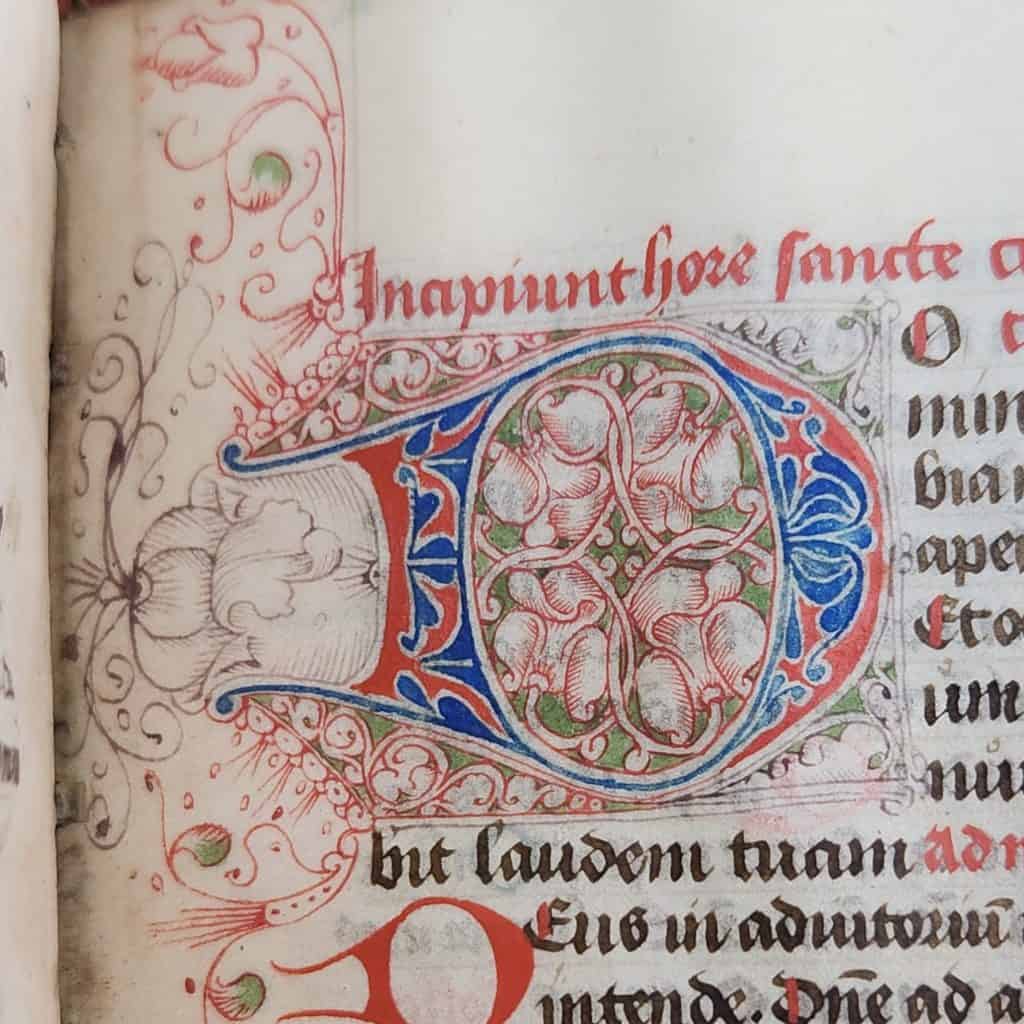 Incipiunt hore sancte c
D
O
min
bia
aper
Et o
um
nu
bit laudem tuam Ad
D
Eus in adiutoriū
intende. Dn̄e ad a